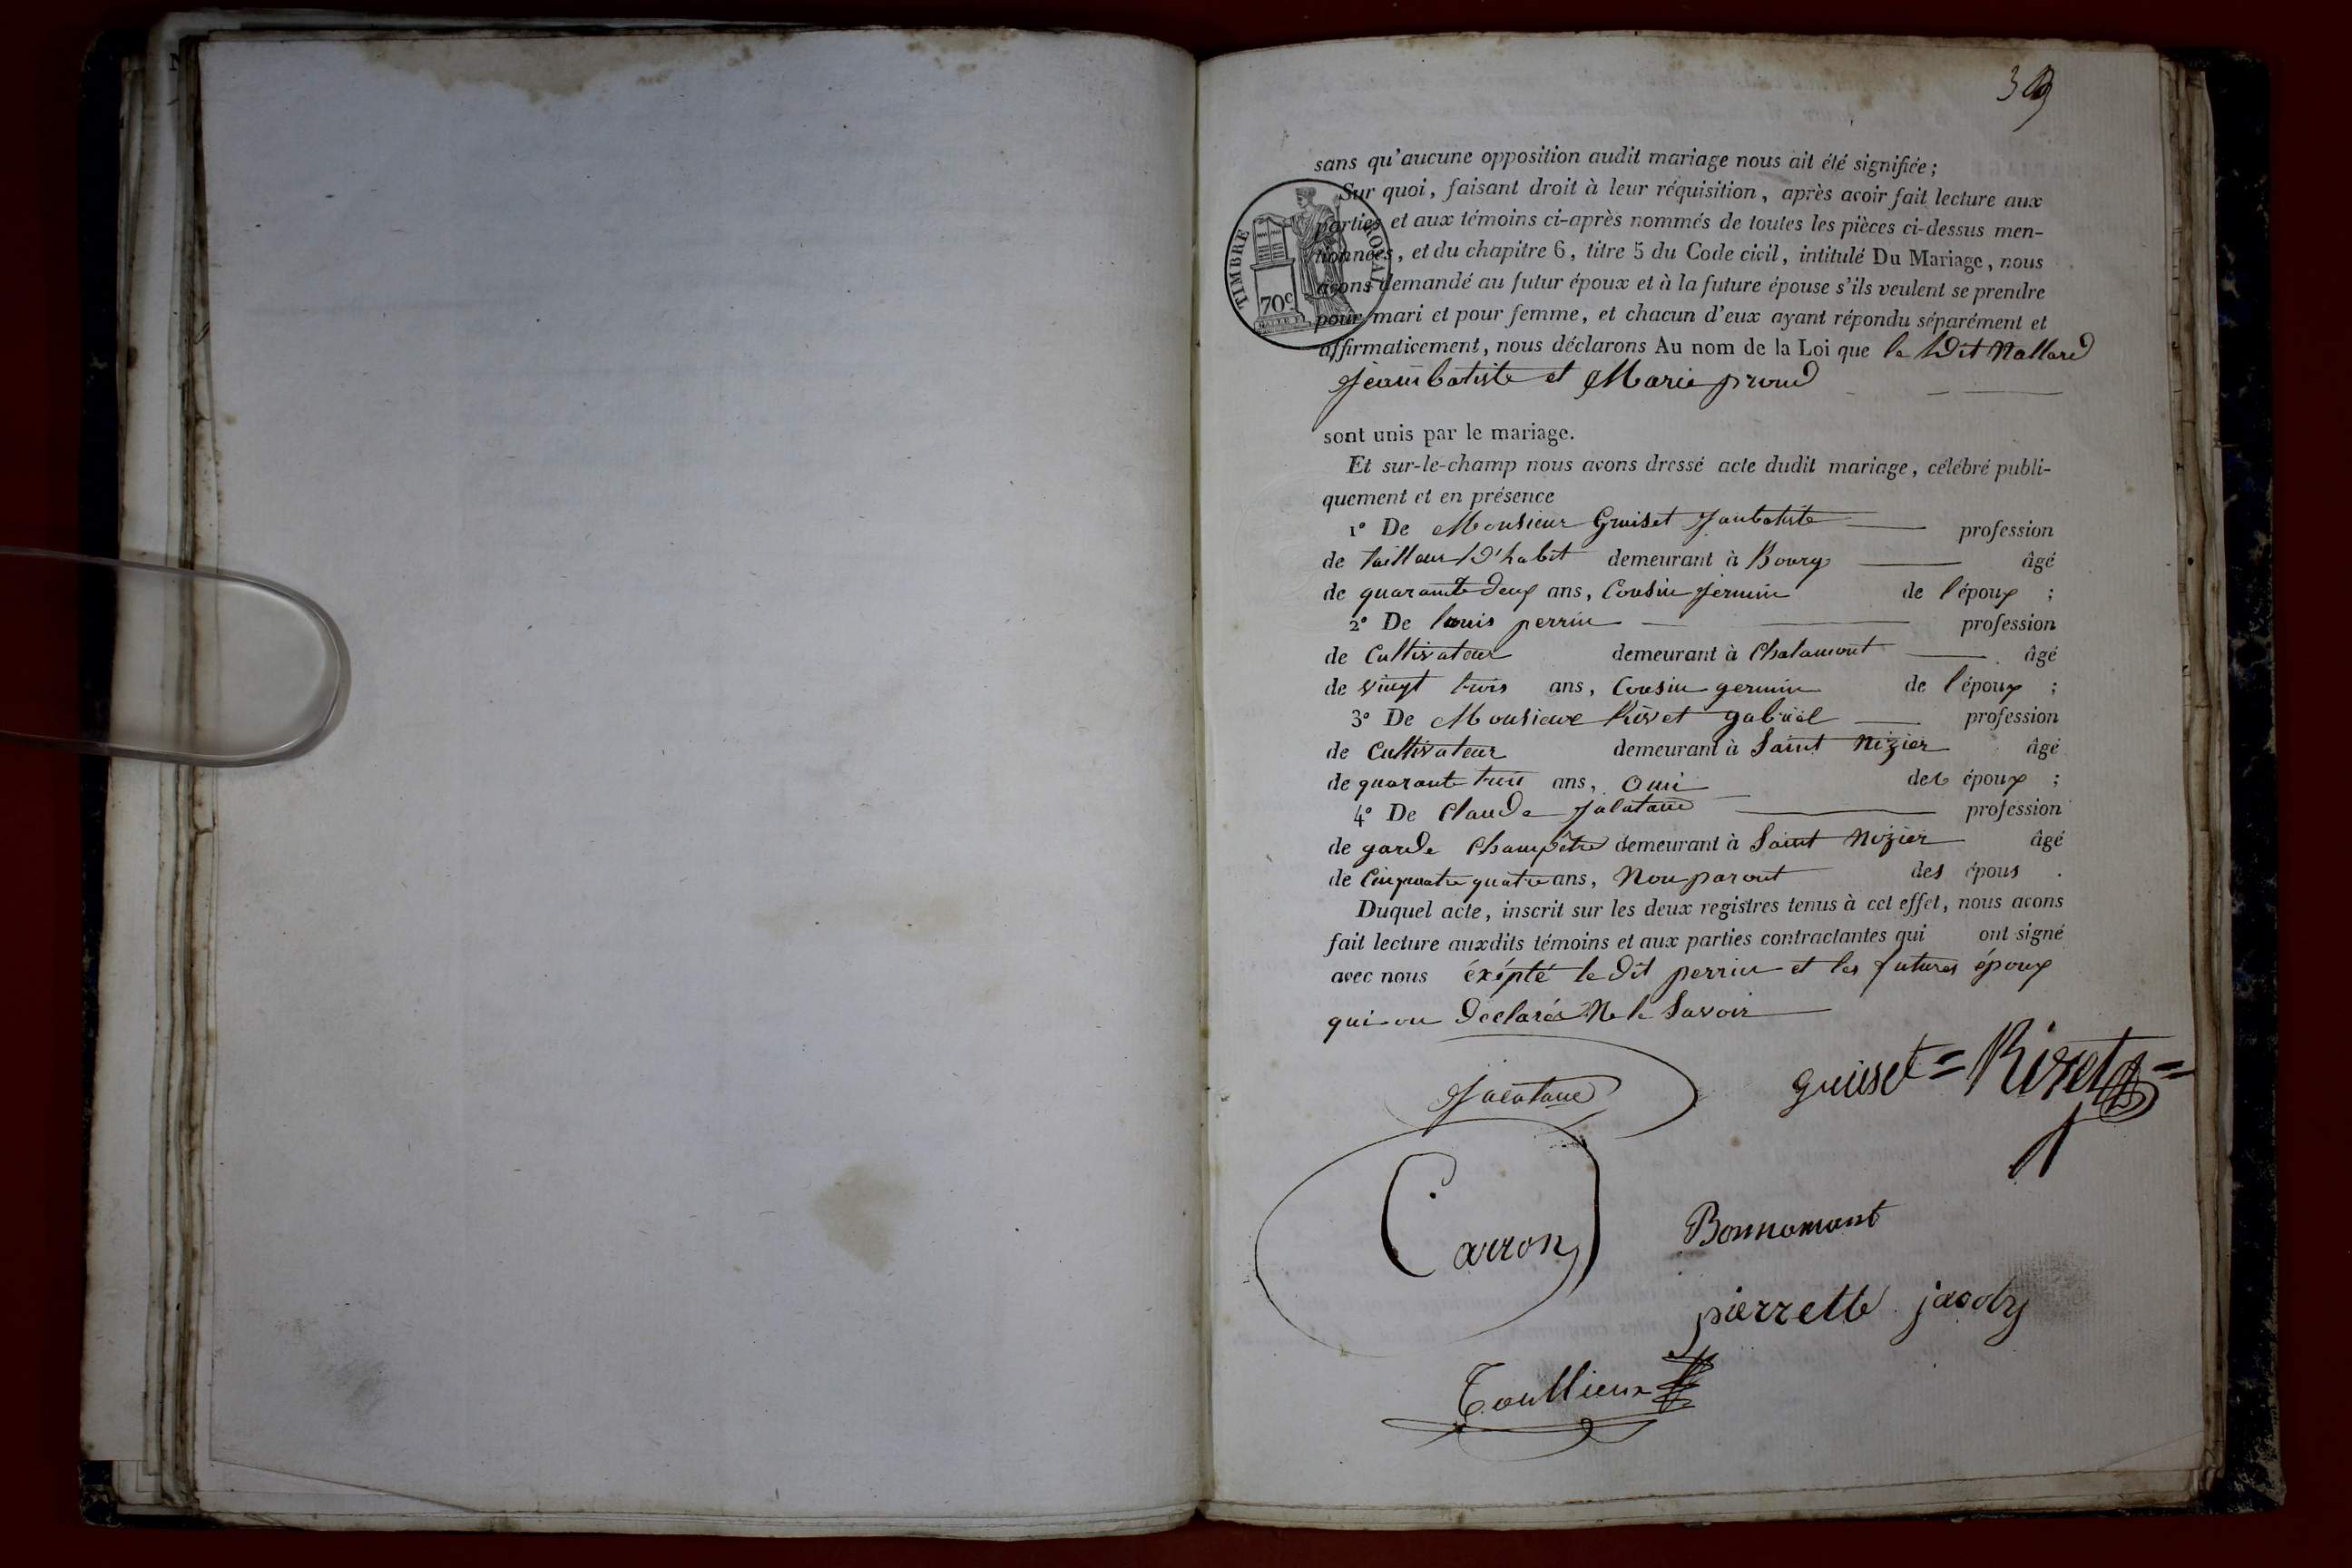 39
sans qu'aucune opposition audit mariage nous ait été signifiée ;
Sur quoi, faisant droit à leur réquisition, après avoir fait lecture aux
parties et aux témoins ci-après nommés de toutes les pièces ci-dessus men-
tionnées, et du chapitre 6, titre 5 du Code civil, intitulé Du Mariage, nous
avons demandé au futur époux et à la future épouse s'ils veulent se prendre
pour mari et pour femme, et chacun d'eux ayant répondu séparément et
affirmativement, nous déclarons Au nom de la Loi que le Dit Nallard
Jeambatiste et Marie proud
TIMBRE ROYAL
70c
sont unis par le mariage.
Et sur-le-champ nous avons dressé acte dudit mariage, célébré publi-
quement et en présence
1° De Monsieur Gruiset Janbatiste profession
de tailleur D'habit demeurant à Bourg âgé
de quarante deux ans, Cousin jermin de l'époux ;
2° De louis perrin profession
de Cultivateur demeurant à Chalamont âgé
de vingt trois ans, Cousin germin de l'époux ;
3° De Monsieur Rivet gabriel profession
de Cultivateur demeurant à Saint Nizier âgé
de quarante trois ans, Ami des époux ;
4° De Claude profession
de garde Champêtre demeurant à Saint Nizier âgé
de Cinquante quatre ans, Non parent des épous .
Duquel acte, inscrit sur les deux registres tenus à cet effet, nous avons
fait lecture auxdits témoins et aux parties contractantes qui ont signé
avec nous éxépté le Dit perrin et les futures époux
qui on Déclarés Ne le Savoir
gruiset = Rivet =
Carron
Bonnamant
pierrette jacody